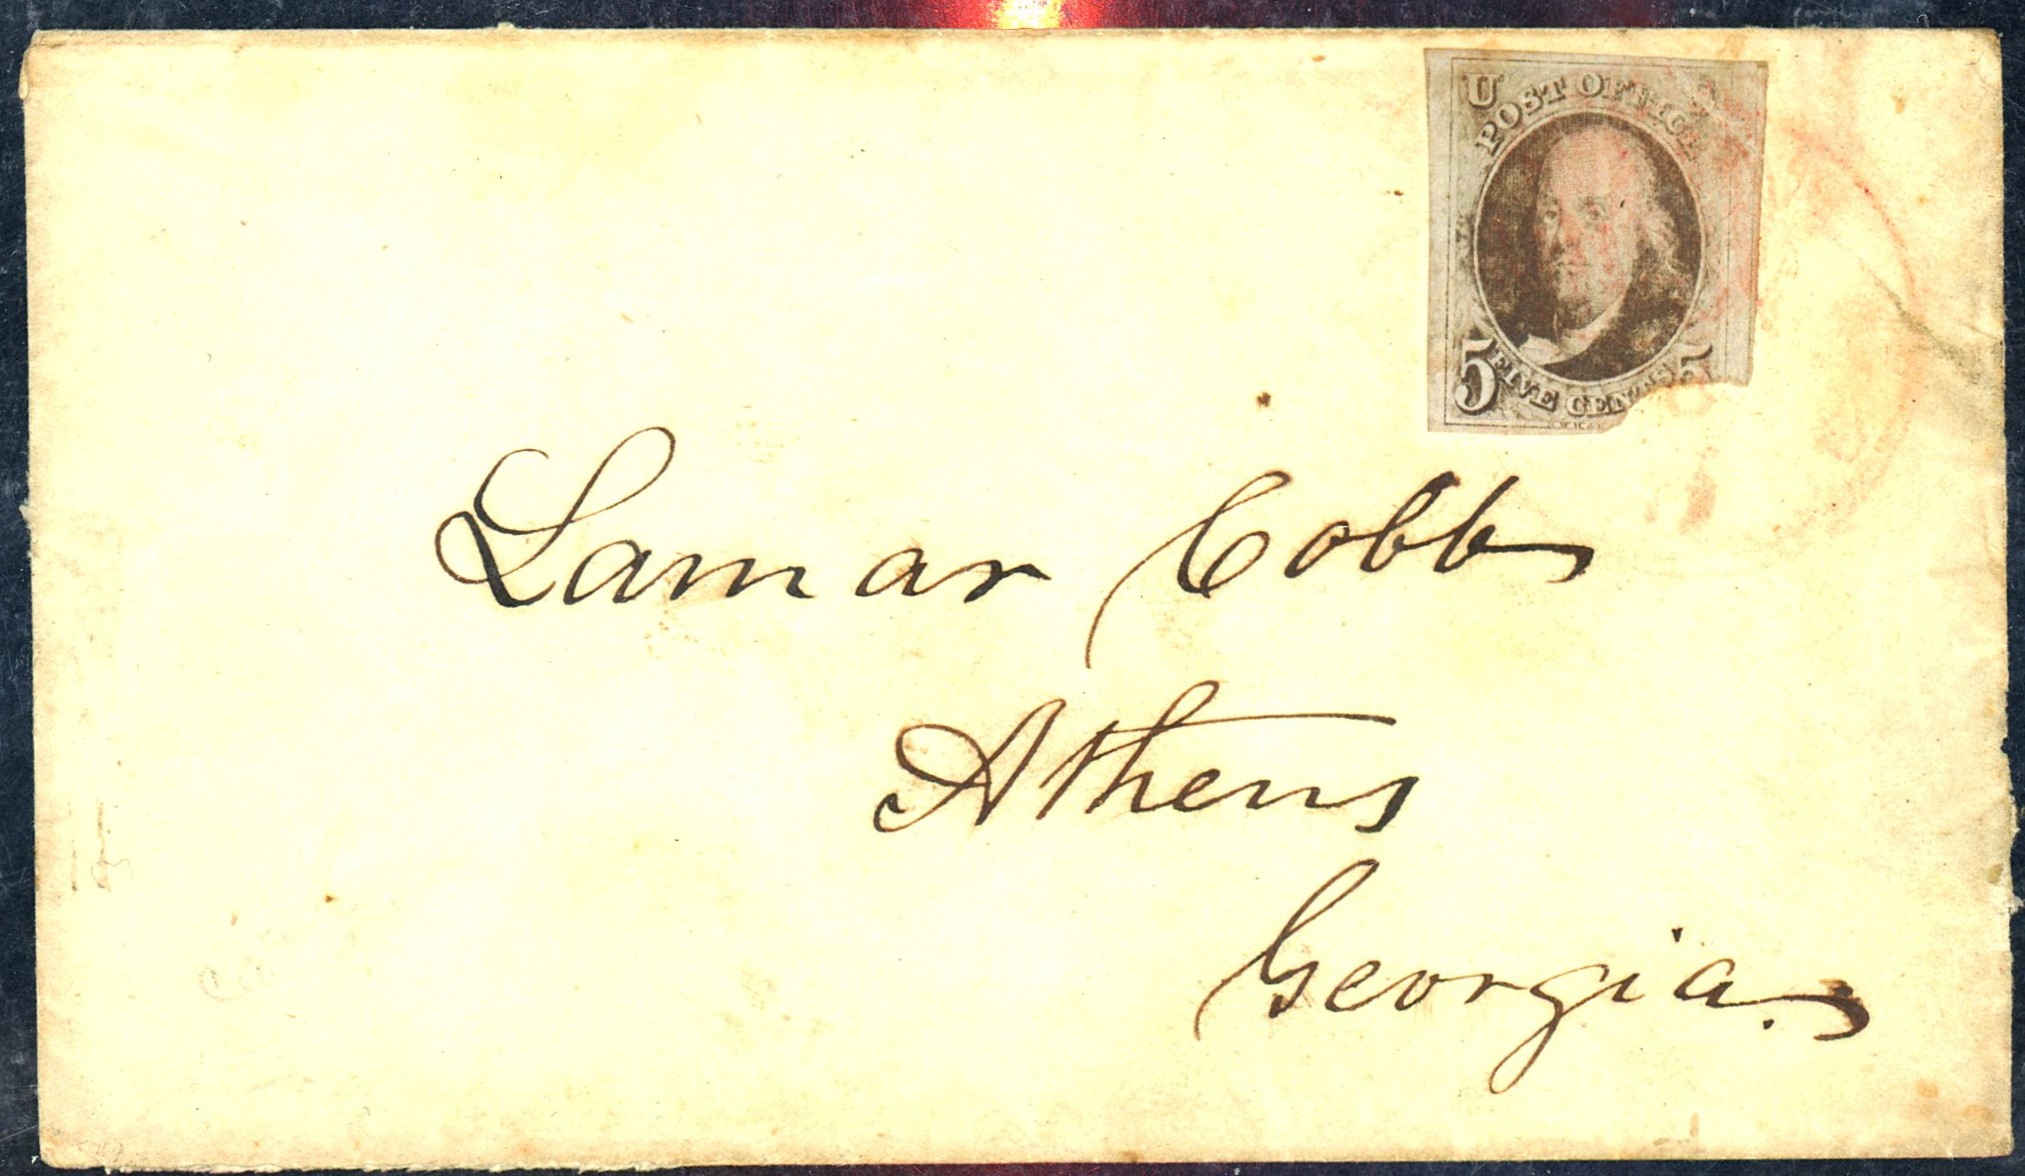 U
POST OFFICE
5 FIVE CENTS 5
Lamar Cobb
Athens
Georgia.